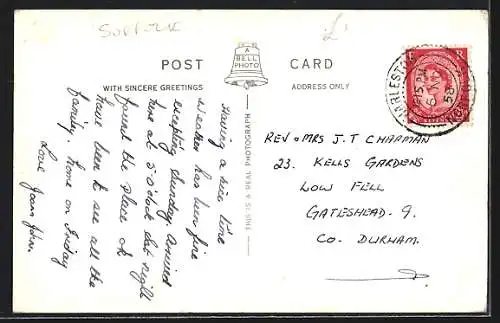 SUFFOLK
£1
POST CARD
A
BELL
PHOTO
WITH SINCERE GREETINGS
ADDRESS ONLY
THIS IS A REAL PHOTOGRAPH
Having a nice time
weather has been fine
excepting Sunday. Arrived
here at 5 o'clock that night
found the place ok
have been to see all the
family. home on Friday
Love Joan John.
REV & MRS J. T CHAPMAN
23. KELLS GARDENS
LOW FELL
GATESHEAD. 9.
CO. DURHAM.
E R
HARLESTON
58
NORFOLK